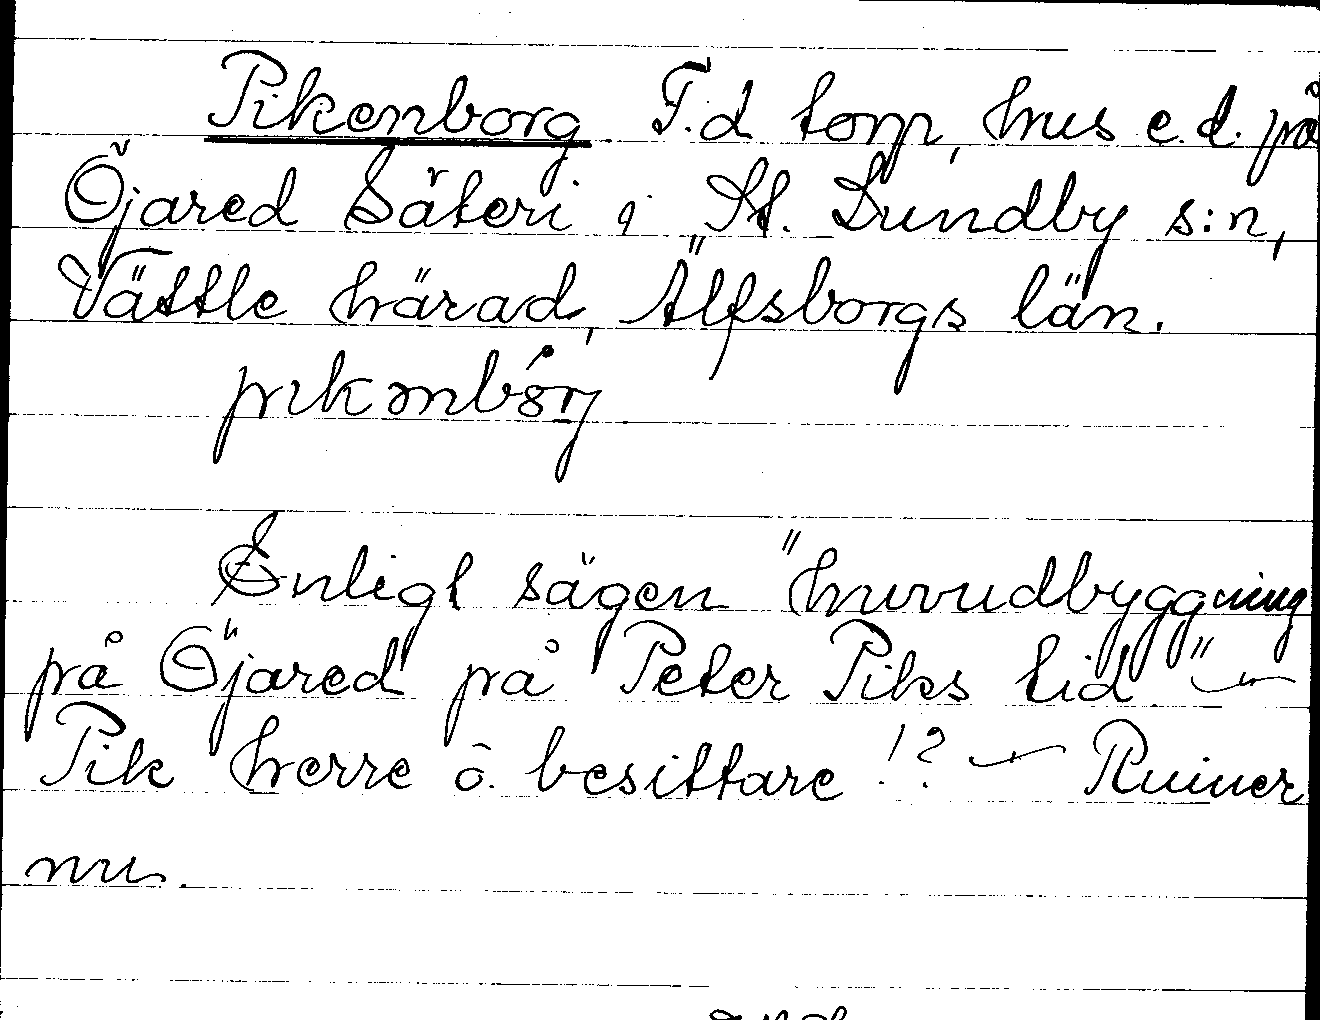 Pikenborg F.d torp, hus e.d. på
Öjared Säteri i St. Lundby s:n,
Vättle härad, Älfsborgs län.
Enligt sägen "huvudbyggning
på Öjared på Peter Piks tid" —
Pik herre o. besittare !? — Ruiner
nu.